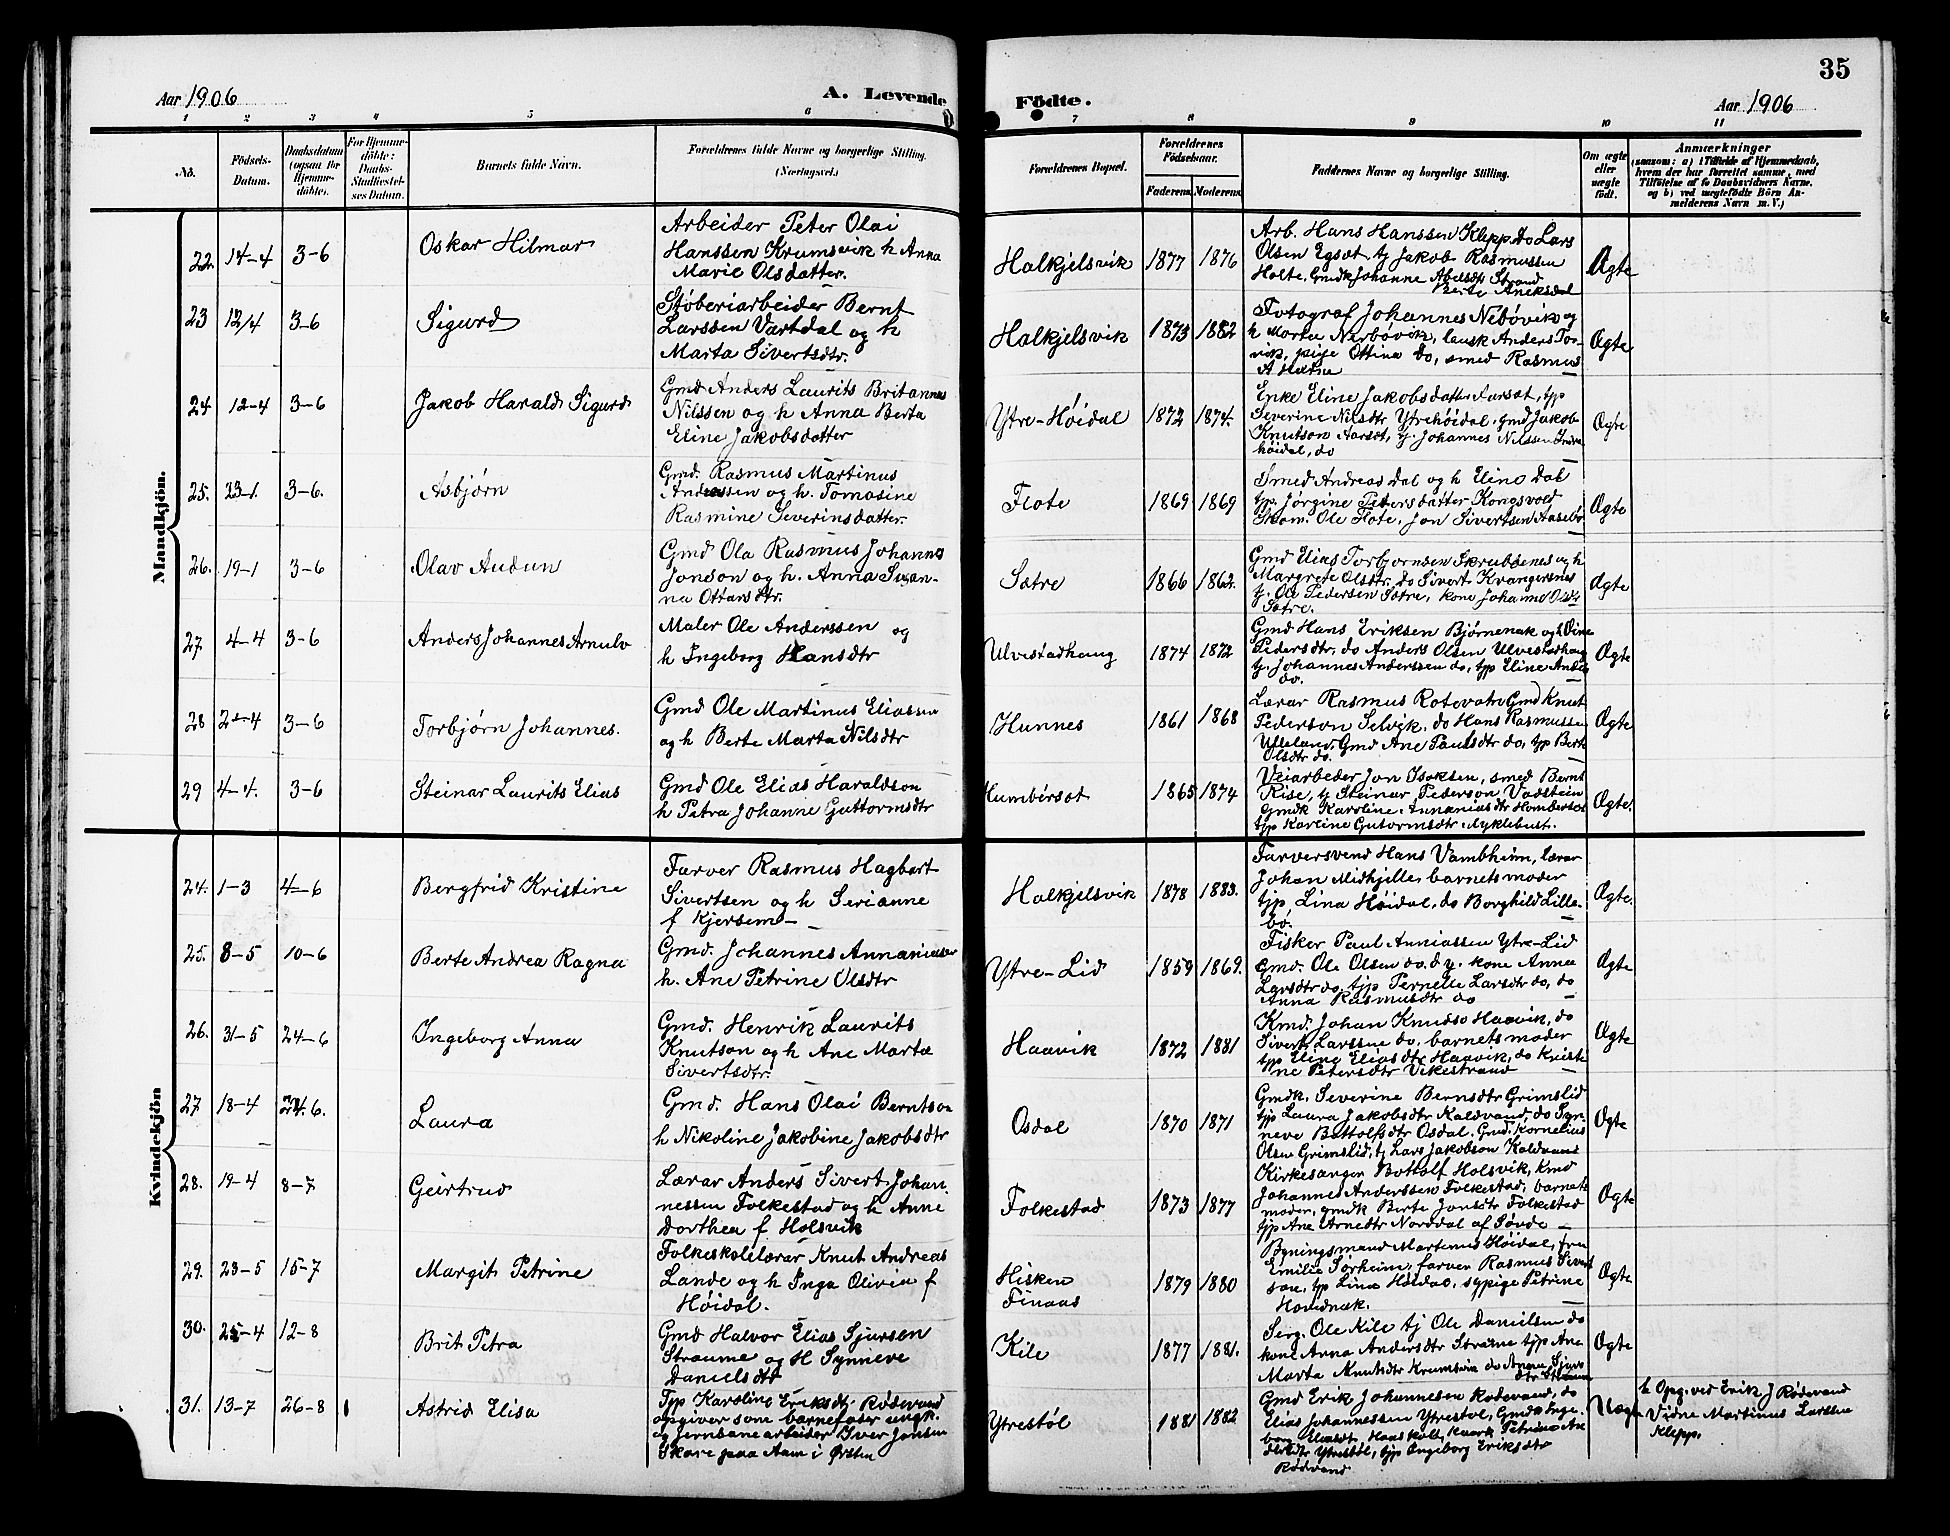 35
Aar 1906
A. Levende
Födte.
Aar 1906
1 2 3 4 5 6 7 8 9 10 11
No.
Födsels-
Datum.
Daabsdatum
(ogsaa for
Hjemme-
döbte).
For Hjemme-
döbte:
Daabs-
Stadfæstel-
ses Datum.
Barnets fulde Navn.
Forældrenes fulde Navne og borgerlige Stilling.
(Næringsvei.)
Forældrenes Bopæl.
Forældrenes
Födselsaar.
Faderens.
Moderens.
Faddernes Navne og borgerlige Stilling.
Om ægte
eller
uægte
födt.
Anmærkninger
(saasom: a) i Tilfælde af Hjemmedaab,
hvem der har forrettet samme, med
Tilföielse af to Daabsvidners Navne,
og b) ved uægtefödte Börn An-
melderens Navn m. V.)
Mandkjön.
22. 14-4 3-6 Oskar Hilmar
Arbeider Peter Olai
Hanssen Krumsvik h Anna
Marie Olsdatter.
Halkjelsvik 1877 1876
Arb. Hans Hanssen Klepp. do Lars
Olsen Egsæt, tj Jakob Rasmussen
Holte, Gmdk Johanne Abelsdtr Strand
Berte Aneksdal
Ægte
23 12/4 3-6 Sigurd
Støberiarbeider Bernt
Larssen Vartdal og h
Marta Sivertsdtr.
Halkjelsvik 1873 1882
Fotograf Johannes Nebövik og
h Marta Nerbövik, lausk Anders Tor-
vik, pige Ottina do, smed Rasmus
A
Ægte
24 12-4 3-6 Jakob Harald Sigurd
Gmd Anders Laurits Britannus
Nilssen og h Anna Berta
Eline Jakobsdatter
Ytre-Höidal 1872 1874.
Enke Eline Jakobsdatter Aarsæt, tjp
Severine Nilsdtr Ytrehöidal, Gmd Jakob
Knutson Aarset, tj. Johannes Nilssen Indre
höidal, do
Ægte
25. 23-1. 3-6. Asbjørn
Gmd. Rasmus Martinus
Anderssen og h. Tomasine
Rasmine Severinsdatter.
Flote 1869 1869
Smed Andreas Dal og h Eline Dal
tjp. Jörgine Pedersdatter Kongsvold
Ole Flote, Jon Sivertsen Aasebö
Ægte
26. 19-1 3-6 Olav Audun
Gmd Ola Rasmus Johannes
Jonson og h. Anna Susan-
na Ottarsdtr.
Sætre 1866 1862.
Gmd Elias Torbjornsen Skrubbenes og h
Margrete Olsdtr. do Sivert Kvangersnes
tj. Ole Pedersen Sætre, kone Johanne Olsdtr
Sætre.
Ægte
27 4-4 3-6 Anders Johannes Arnulv
Maler Ole Anderssen og
h Ingeborg Hansdtr
Ulvestadhaug 1874 1872
Gmd Hans Eriksen Bjørnenak og h Oline
Pedersdtr, do Anders Olsen Ulvestadhaug
tj. Johannes Anderssen do, tjp Eline Andersd
do.
Ægte
28 2-4 3-6 Torbjørn Johannes.
Gmd Ole Martinus Eliassen
og h Berte Marta Nilsdtr
Hunnes 1861 1868
Lærar Rasmus Rotevatn Gmd Knut
Pederson Selvik, do Hans Rasmussen
Gmd Ane Paulsdtr do, tjp Berte
Olsdtr do.
Ægte
29 4-4. 3-6 Steinar Laurits Elias
Gmd Ole Elias Haraldson
h Petra Johanne Guttormsdtr
Humbörsæt 1865 1874
Veiarbeder Jon Isaksen, smed Bernt
Rise, tj Steinar Pederson Vadstein
Gmdk Karoline Annaniasdtr Hombersæt
tjp Karline Gutormsdtr Myklebust.
Ægte.
Kvindekjön
24. 1-3 4-6 Bergfrid Kristine
Farver Rasmus Hagbart
Sivertsen og h Serianne
f Kjersem
Halkjelsvik 1878 1883.
Farversvend Hans Vambheim, lærar
Johan Midkjelle, barnets moder
tjp Lina Höidal, do Borghild Lille-
bö.
Ægte.
25. 8-5 10-6 Berte Andrea Ragna
Gmd. Johannes Annaniassen
h. Ane Petrine Olsdtr
Ytre-Lid 1859 1869.
Fisker Paul Anniassen Ytre-Lid
Gmd. Ole Olsen do. d y. kone Anna
Larsdtr do, tjp Pernelle Larsdtr do, do
Anna Rasmusdtr do
Ægte
26. 31-5 24-6 Ingeborg Anna
Gmd. Henrik Laurits
Knutson og h Ane Marta
Sivertsdtr.
Haavik 1872 1881
Kmd. Johan Knudso Haavik, do
Sivert Larssen do, barnets moder
tjp Eline Eliasdtr Haavik, do Kristi-
ne Petersdtr Vikestrand
Ægte
27 18-4 24-6. Laura
Gmd. Hans Olai Berntson
h Nikoline Jakobine Jakobsdtr
Osdal 1870 1871
Gmdk. Severine Bernsdtr Grimslid
tjp Laura Jakobsdtr Kaldvand, do Syn-
neve Bottolfsdtr Osdal. Gmd. Kornelius
Olsen Grimslid, tj Lars Jakobson Kaldvand
Ægte
28. 19-4 8-7 Geirtrud
Lærar Anders Sivert Johan-
nessen Folkestad og h Anne
Dorthea f Holsvik
Folkestad 1873 1877
Kirkesanger Bottolf Holsvik, Kmd
Johannes Anderssen Folkestad, barnets
moder, gmdk Berte Jonsdtr Folkestad
tjp Ane Arnedtr Norddal af Søvde
Ægte
29. 23-5 15-7 Margit Petrine
Folkeskolelærar Knut Andreas
Lande og h Inga Olivia f
Höidal.
Hisken
Finaas 1879 1880
Bygningsmand Martinus Höidal, fru
Emilie Sörheim, farver Rasmus Sivert
sen, tjp Lina Höidal, sypige Petrine
Hovdenak.
Ægte
30. 25-4 12-8 Brit Petra
Gmd Halvor Elias Sjursen
Straume og H Synneve
Danielsdtr
Kile 1877 1881.
Serg. Ole Kile tj Ole Danielsen do
kone Anna Andersdtr Straume tjp Ane
Marta Knutsdtr Krumsvik do Anna Sjurs
dtr Straum
Ægte
31. 13-7 26-8 Astrid Elisa
Tjp Karoline Eriksdtr Rödevand
opgiver som barnefader ungk.
og jernbanearbeider Iver Jonsen
Skare paa Aam i Ørsten
Ytrestöl 1881 1882
Gmd Erik Johannesen Rødevand, do
Elias Johannessen Ytrestöl, Gmdk Inge-
borg Eliasdt, Hans kall, kaark Petrine Ane
dtr Ytrestöl, tjp Ingeborg Eriksdtr
Rödvand
Uægte
h Opg. ved Erik J Rödevand
Vidne Martinus Larssen
Klepp.